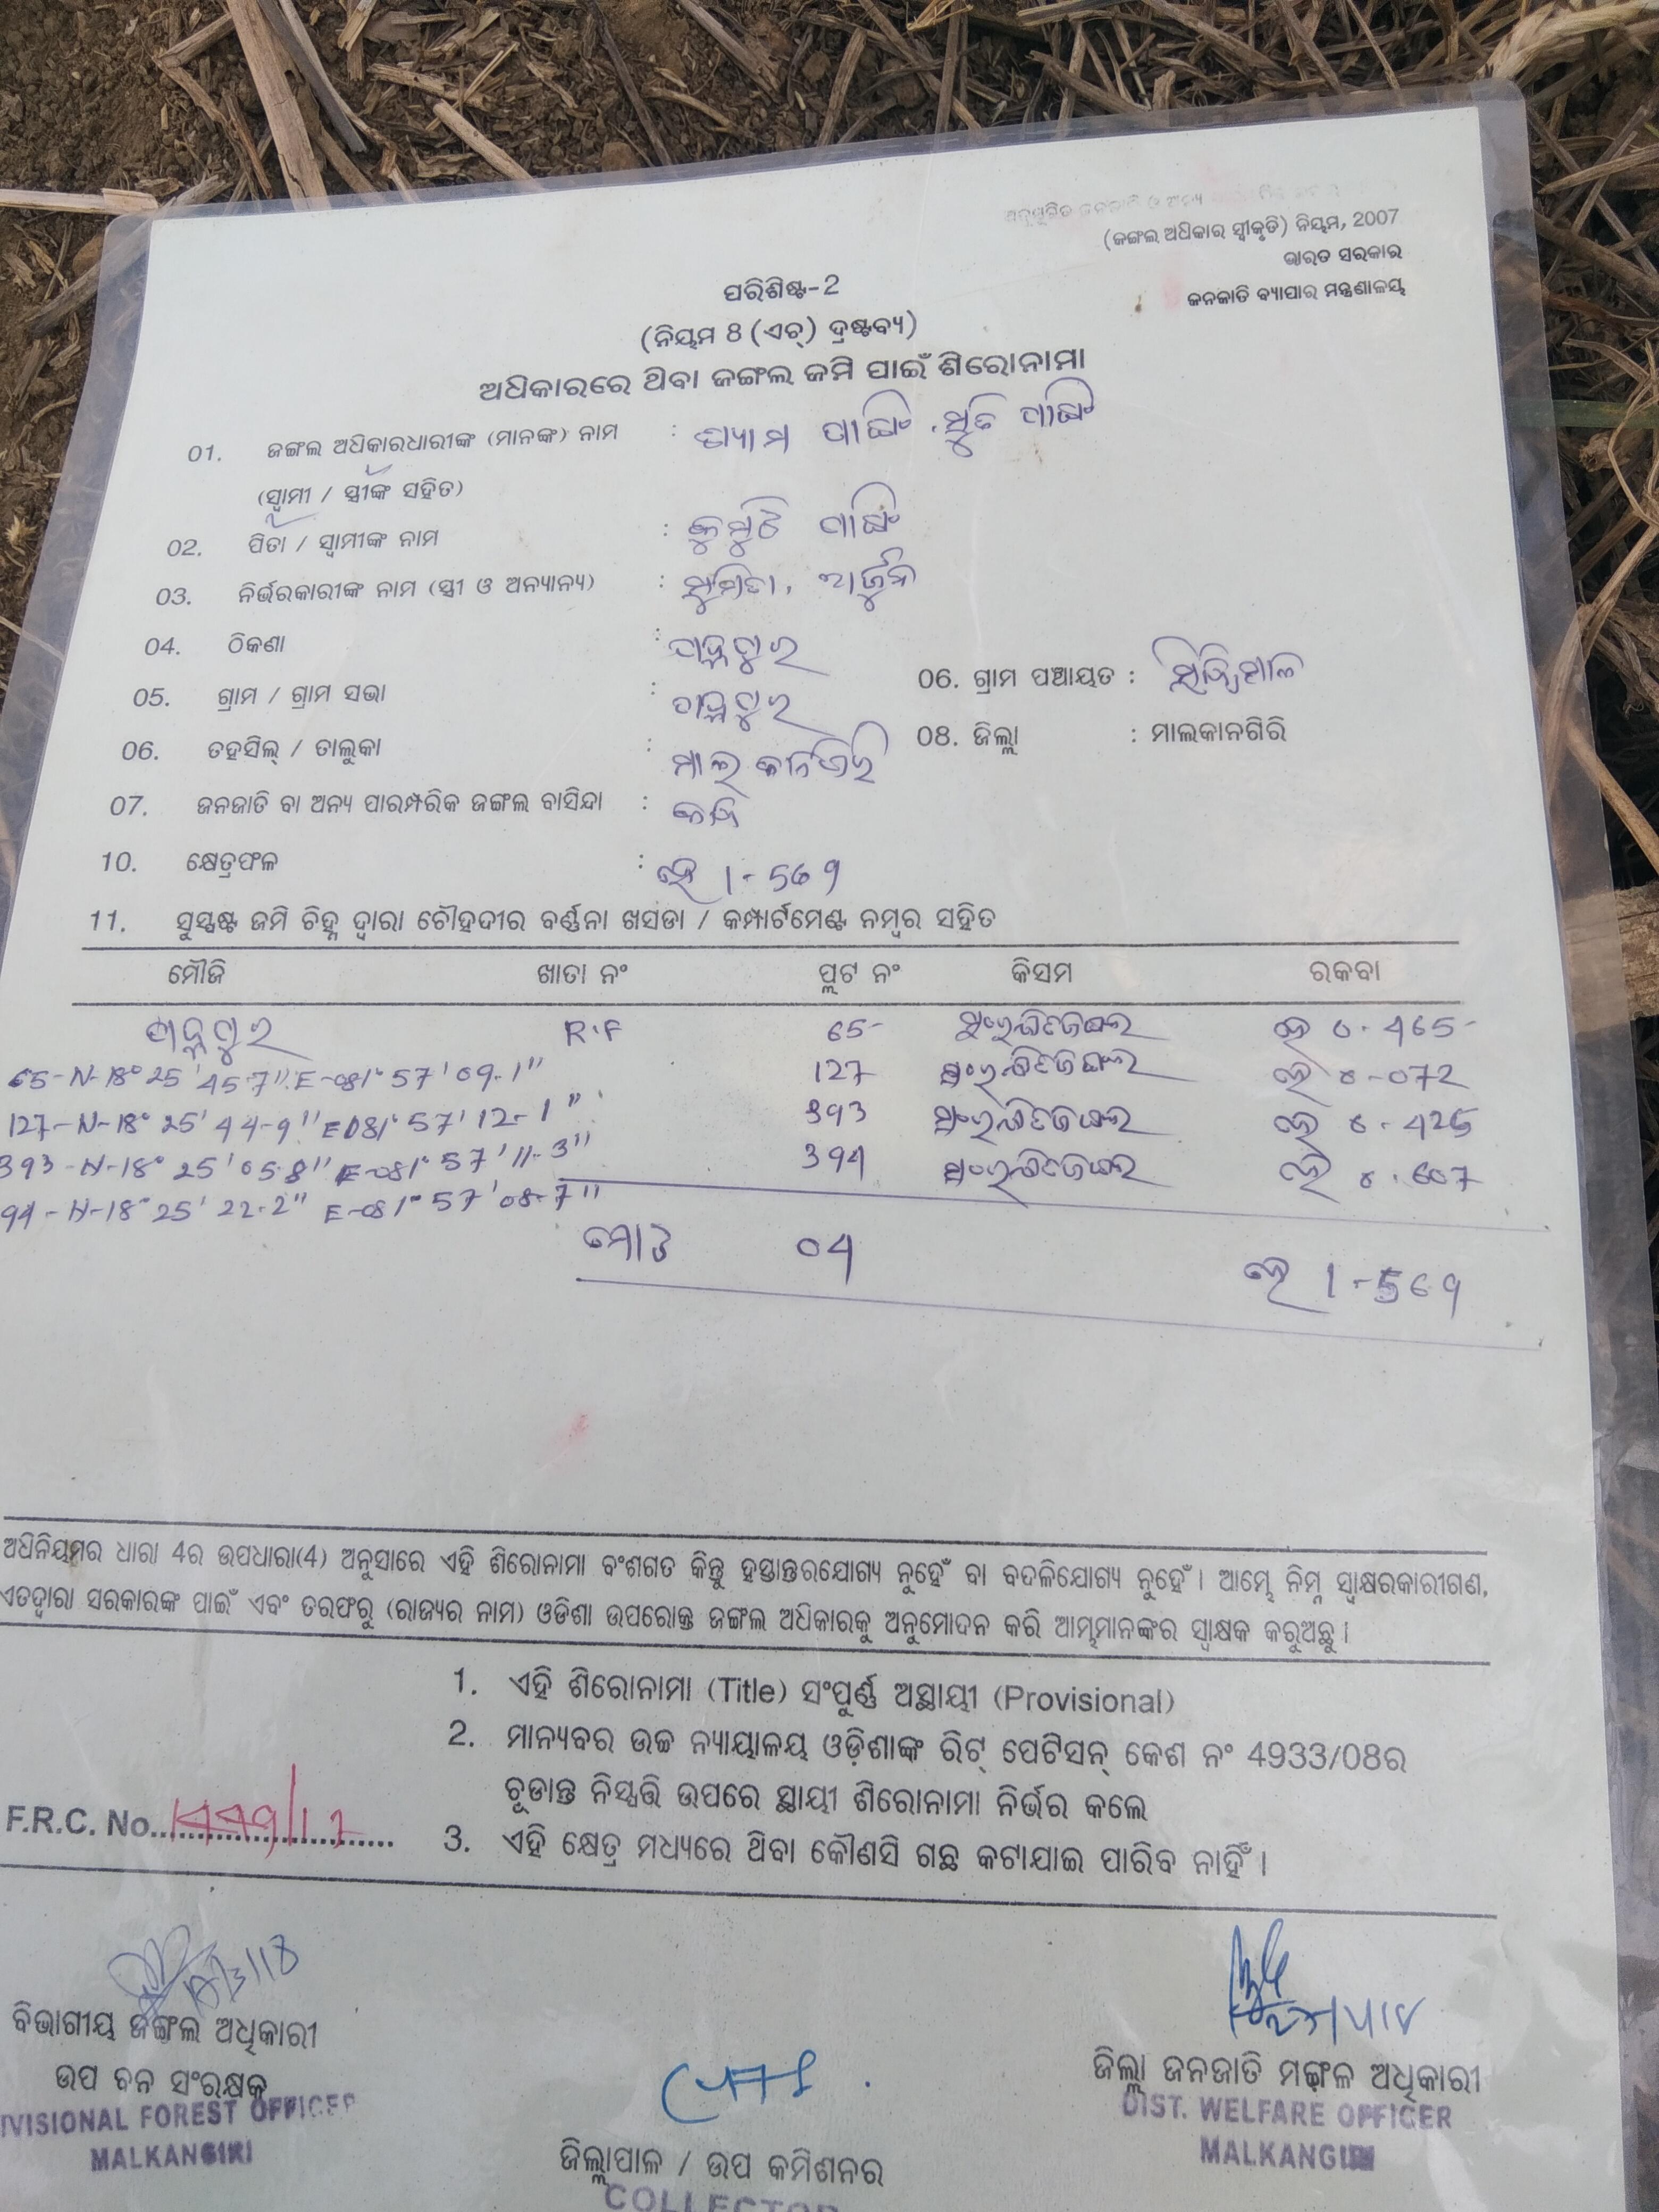 ଅନୁସୂଚିତ ଜନଜାତି ଓ ଅନ୍ୟ
(ଜଙ୍ଗଲ ଅଧିକାର ସ୍ଵୀକୃତି) ନିୟମ, 2007
ଭାରତ ସରକାର
ଜନଜାତି ବ୍ୟାପାର ମନ୍ତ୍ରଣାଳୟ
ପରିଶିଷ୍ଟ-2
(ନିୟମ 8 (ଏଚ୍) ଦ୍ରଷ୍ଟବ୍ୟ)
ଅଧିକାରରେ ଥିବା ଜଙ୍ଗଲ ଜମି ପାଇଁ ଶିରୋନାମା
01. ଜଙ୍ଗଲ ଅଧିକାରଧାରୀଙ୍କ (ମାନଙ୍କ) ନାମ : ଶ୍ୟାମ
(ସ୍ଵାମୀ / ସ୍ତ୍ରୀଙ୍କ ସହିତ)
02. ପିତା / ସ୍ଵାମୀଙ୍କ ନାମ :
03. ନିର୍ଭରକାରୀଙ୍କ ନାମ (ସ୍ତ୍ରୀ ଓ ଅନ୍ୟାନ୍ୟ) : ଅର୍ଜୁନ
04. ଠିକଣା :
05. ଗ୍ରାମ / ଗ୍ରାମ ସଭା : 06. ଗ୍ରାମ ପଞ୍ଚାୟତ :
06. ତହସିଲ୍ / ତାଲୁକା : ମାଲକାନଗିରି 08. ଜିଲ୍ଲା : ମାଲକାନଗିରି
07. ଜନଜାତି ବା ଅନ୍ୟ ପାରମ୍ପରିକ ଜଙ୍ଗଲ ବାସିନ୍ଦା :
10. କ୍ଷେତ୍ରଫଳ : ହେ 1-569
11. ସୁସ୍ପଷ୍ଟ ଜମି ଚିହ୍ନ ଦ୍ଵାରା ଚୌହଦୀର ବର୍ଣ୍ଣନା ଖସଡା / କମ୍ପାର୍ଟମେଣ୍ଟ ନମ୍ବର ସହିତ
ମୌଜି ଖାତା ନଂ ପ୍ଲଟ ନଂ କିସମ ରକବା
R.F 65 ସଂରକ୍ଷିତ ଜଙ୍ଗଲ ହେ 0.465
65-N-18° 25' 45.7" E-081° 57' 09.1" 127 ସଂରକ୍ଷିତ ଜଙ୍ଗଲ ହେ 0-072
127-N-18° 25' 44-9" E081° 57' 12-1" 393 ସଂରକ୍ଷିତ ଜଙ୍ଗଲ ହେ 0.425
393-N-18° 25' 05.8" E-081° 57' 11-3" 394 ସଂରକ୍ଷିତ ଜଙ୍ଗଲ ହେ 0.607
94-N-18° 25' 22.2" E-081° 57' 08-7"
ମୋଟ 04 ହେ 1-569
ଅଧିନିୟମର ଧାରା 4ର ଉପଧାରା(4) ଅନୁସାରେ ଏହି ଶିରୋନାମା ବଂଶଗତ କିନ୍ତୁ ହସ୍ତାନ୍ତରଯୋଗ୍ୟ ନୁହେଁ ବା ବଦଳିଯୋଗ୍ୟ ନୁହେଁ। ଆମ୍ଭେ ନିମ୍ନ ସ୍ଵାକ୍ଷରକାରୀଗଣ,
ଏତଦ୍ଵାରା ସରକାରଙ୍କ ପାଇଁ ଏବଂ ତରଫରୁ (ରାଜ୍ୟର ନାମ) ଓଡିଶା ଉପରୋକ୍ତ ଜଙ୍ଗଲ ଅଧିକାରକୁ ଅନୁମୋଦନ କରି ଆମ୍ଭମାନଙ୍କର ସ୍ଵାକ୍ଷକ କରୁଅଛୁ।
1. ଏହି ଶିରୋନାମା (Title) ସଂପୂର୍ଣ୍ଣ ଅସ୍ଥାୟୀ (Provisional)
2. ମାନ୍ୟବର ଉଚ୍ଚ ନ୍ୟାୟାଳୟ ଓଡ଼ିଶାଙ୍କ ରିଟ୍ ପେଟିସନ୍ କେଶ ନଂ 4933/08ର
ଚୂଡାନ୍ତ ନିସ୍ପତ୍ତି ଉପରେ ସ୍ଥାୟୀ ଶିରୋନାମା ନିର୍ଭର କଲେ
F.R.C. No.
3. ଏହି କ୍ଷେତ୍ର ମଧ୍ୟରେ ଥିବା କୌଣସି ଗଛ କଟାଯାଇ ପାରିବ ନାହିଁ।
ବିଭାଗୀୟ ଜଙ୍ଗଲ ଅଧିକାରୀ
ଉପ ବନ ସଂରକ୍ଷକ
IVISIONAL FOREST OFFICER
MALKANGIRI
ଜିଲ୍ଲା ଜନଜାତି ମଙ୍ଗଳ ଅଧିକାରୀ
DIST. WELFARE OFFICER
MALKANGIRI
ଜିଲ୍ଲାପାଳ / ଉପ କମିଶନର
COLLECTOR